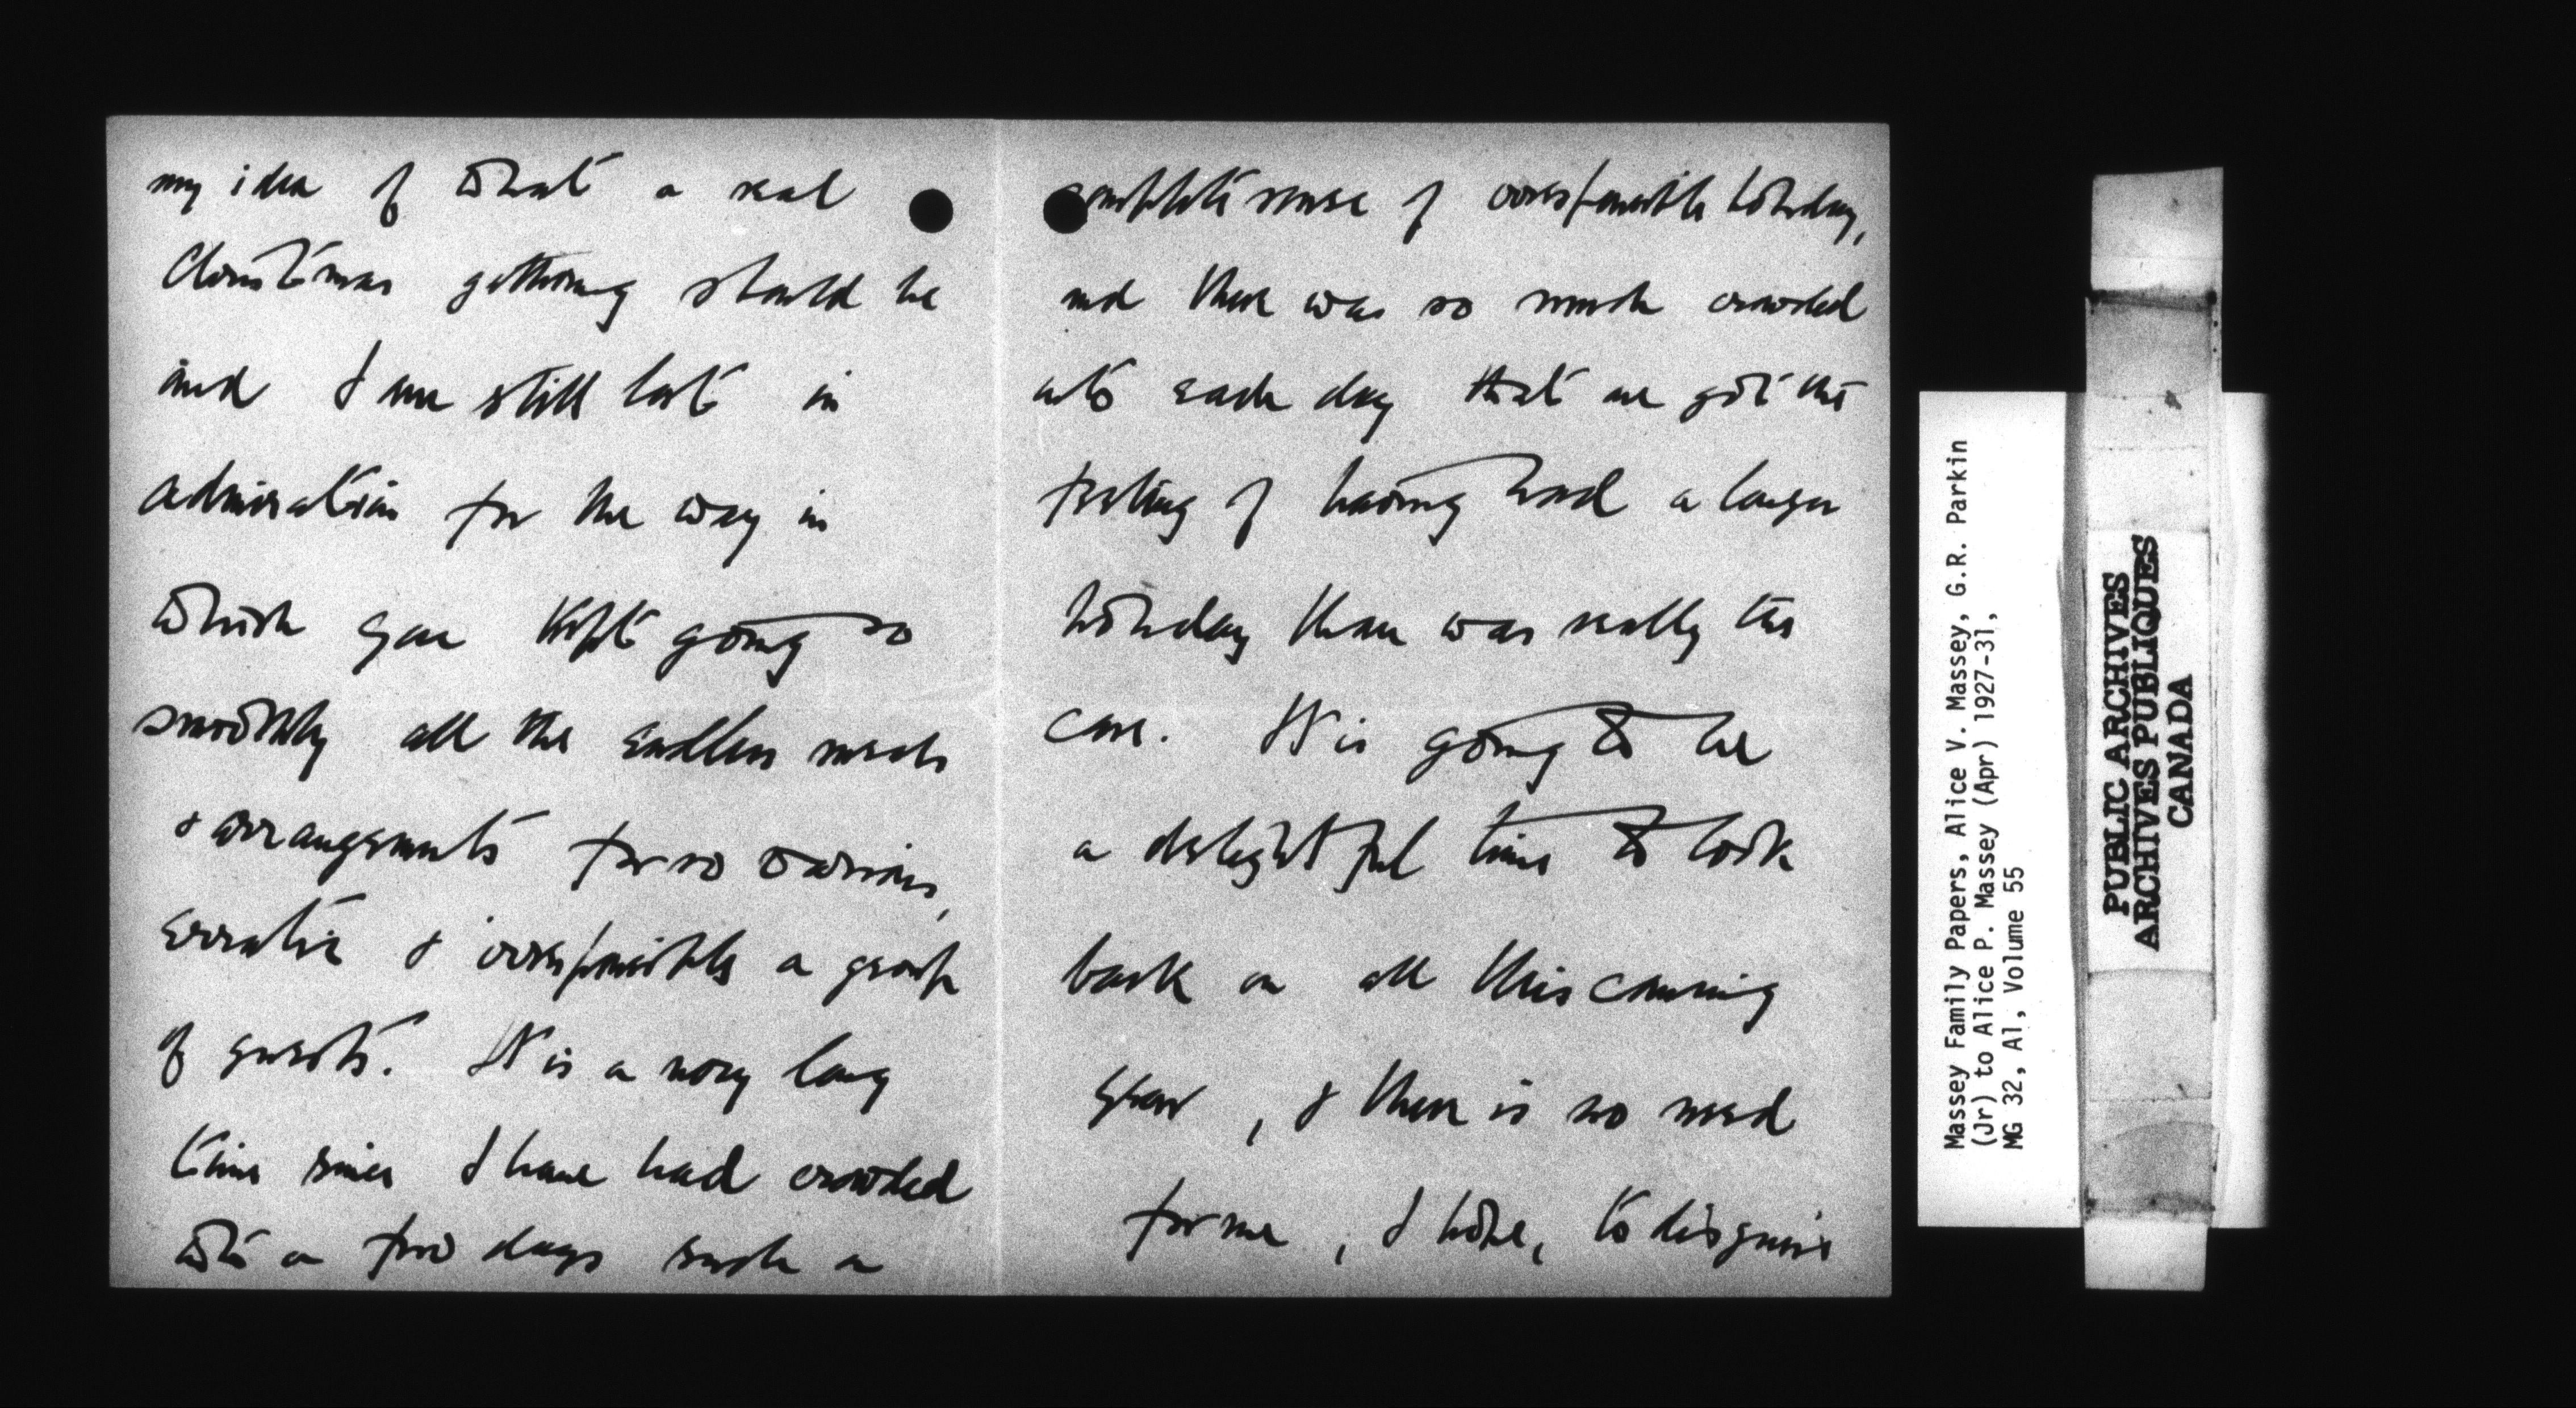 my idea of what a real
Christmas gathering should be
and I am still lost in
admiration for the way in
which you kept going so
smoothly all the endless meals
& arrangements for so various,
erratic & irresponsible a group
of guests. It is a very long
time since I have had crowded
into a few days such a
complete sense of irresponsible holiday,
and there was so much crowded
into each day that one got the
feeling of having had a longer
holiday than was really the
case. It is going to be
a delightful time to look
back on all this coming
year, & there is no need
for me, I hope, to disguise
Massey Family Papers, Alice V. Massey, G.R. Parkin
(Jr) to Alice P. Massey (Apr) 1927-31,
MG 32, A1, Volume 55
PUBLIC ARCHIVES
ARCHIVES PUBLIQUES
CANADA